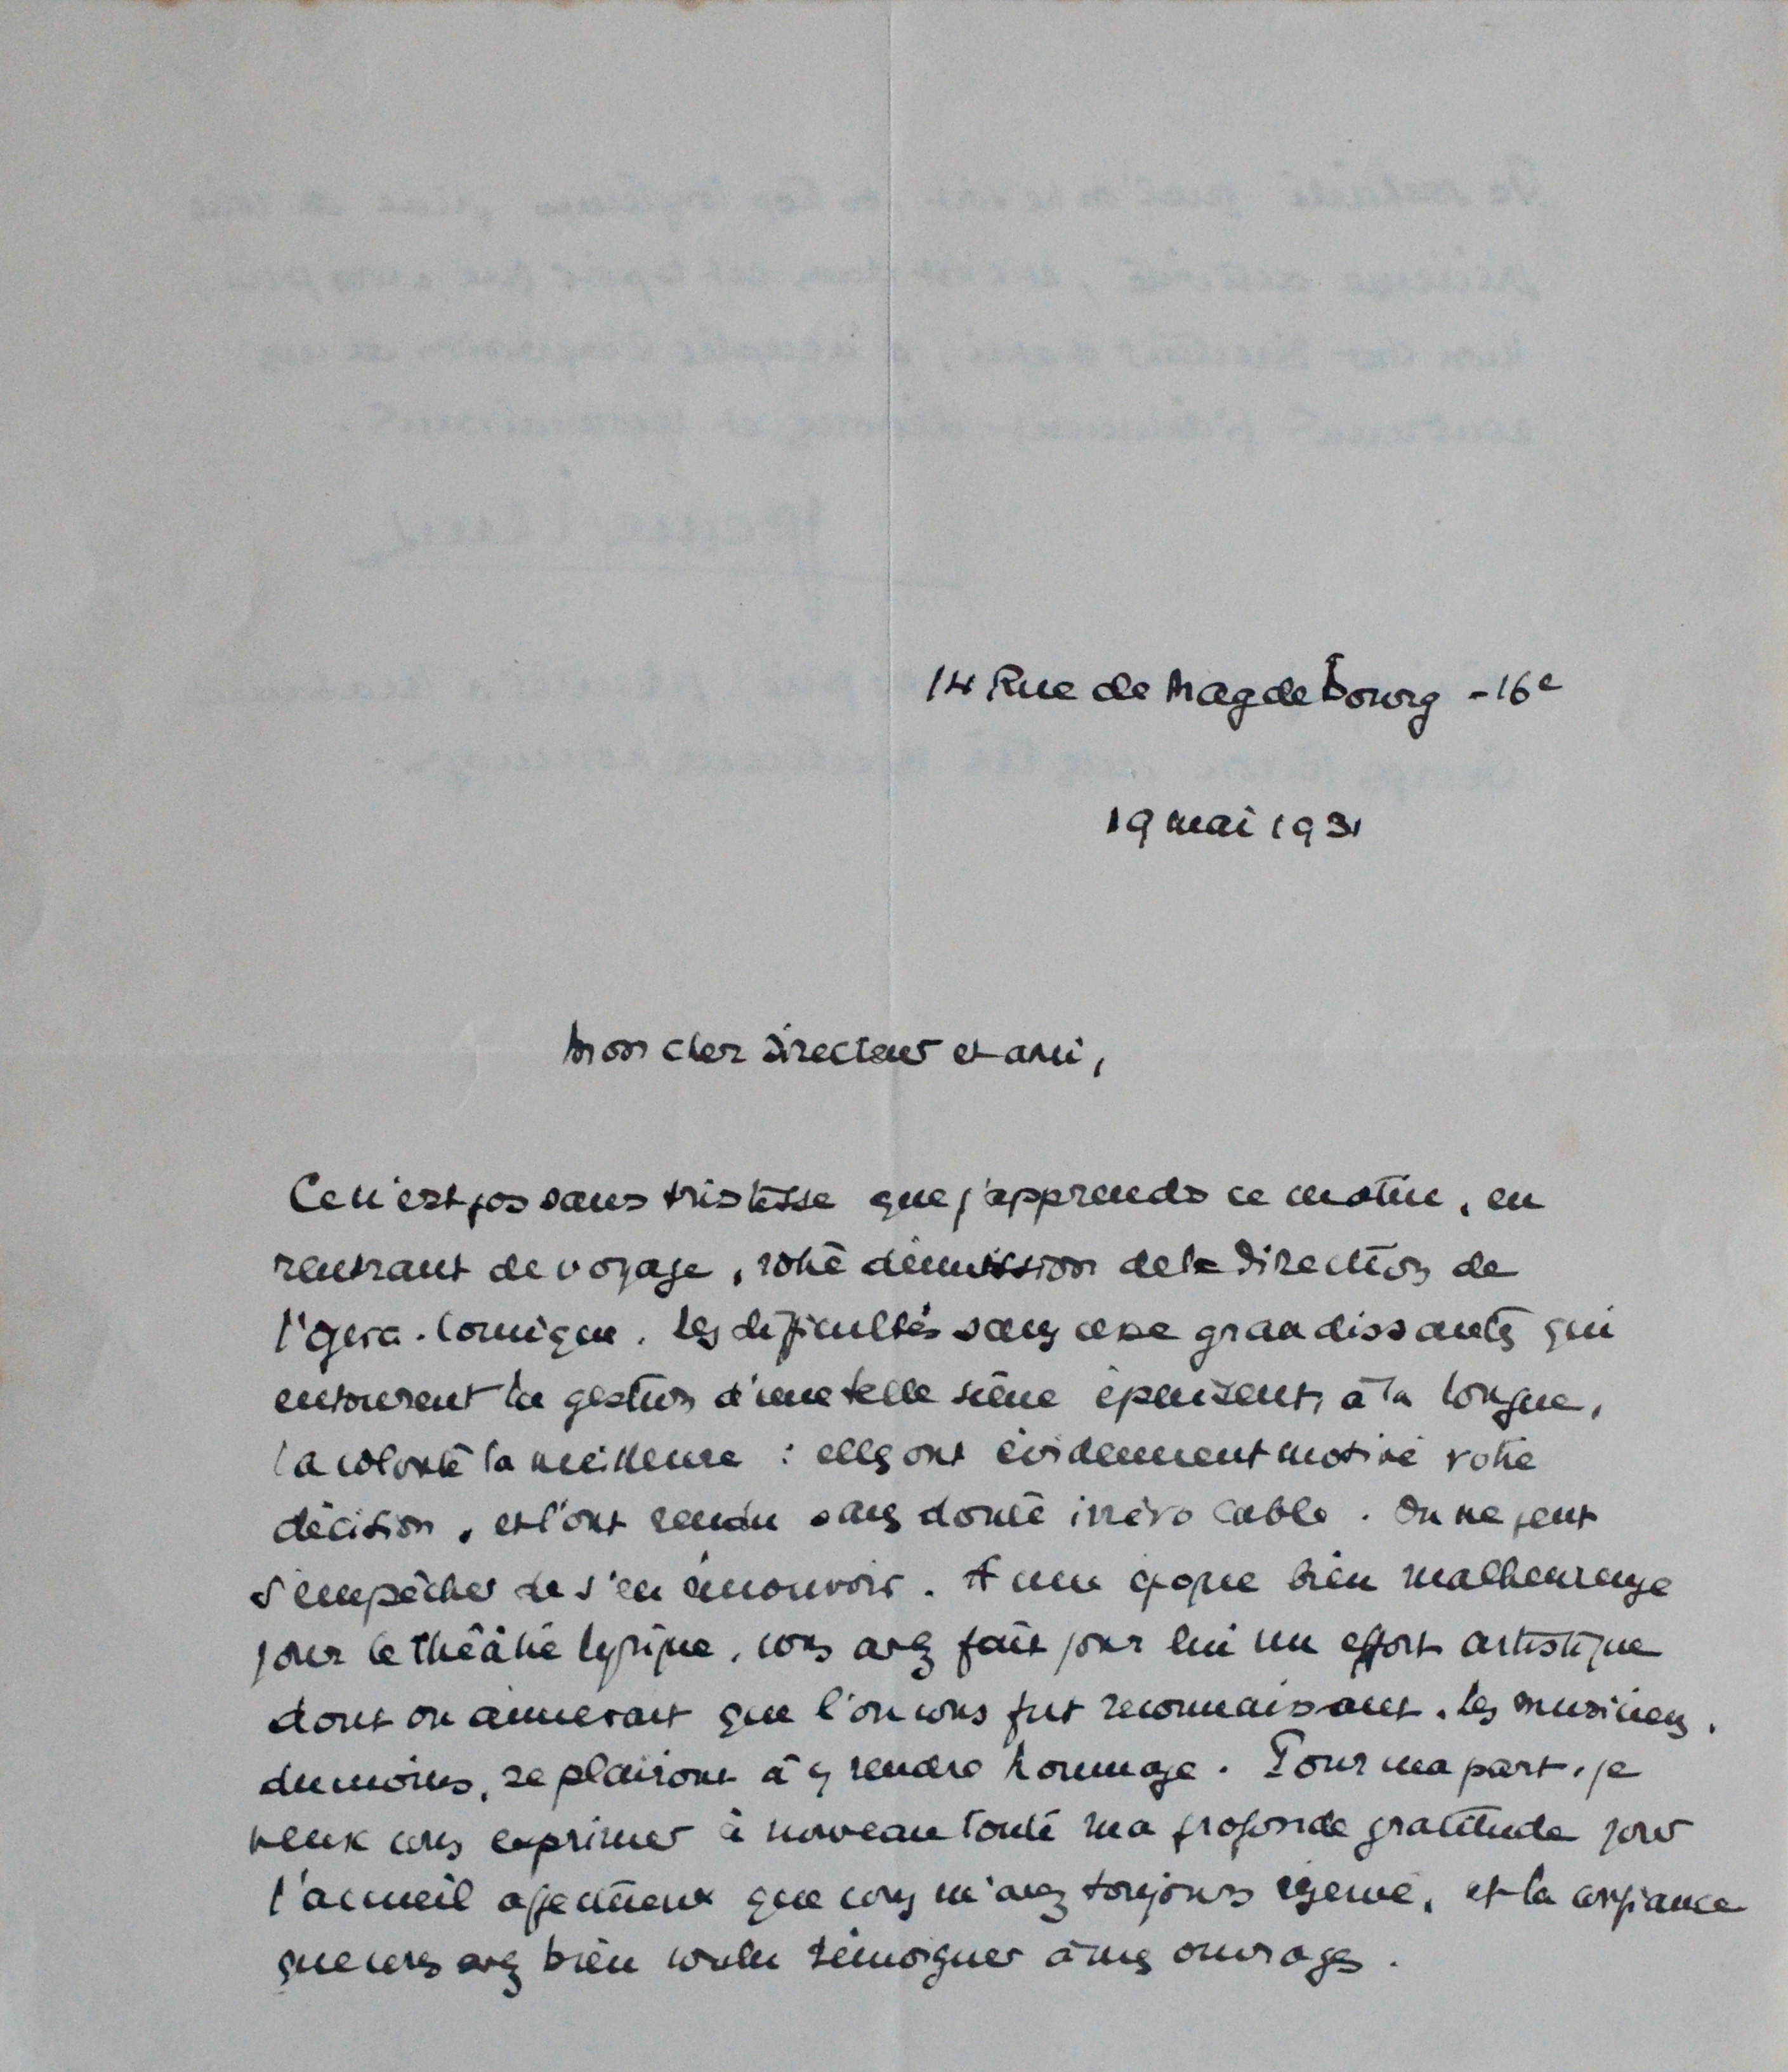 14 Rue de Magdebourg - 16e
19 mai 1931
Mon cher Directeur et ami,
Ce n'est pas sans tristesse que j'apprends ce matin, en
rentrant de voyage, votre démission de la Direction de
l'Opéra-Comique. Les difficultés sans cesse grandissantes qui
entourent la gestion d'une telle scène épuisent, à la longue,
la volonté la meilleure : elles ont évidemment motivé votre
décision, et l'ont rendu sans doute irrévocable. On ne peut
s'empêcher de s'en émouvoir. A une époque bien malheureuse
pour le théâtre lyrique, vous avez fait pour lui un effort artistique
dont on aimerait que l'on vous fut reconnaissant. Les musiciens,
du moins, se plairont à y rendre hommage. Pour ma part, je
veux vous exprimer à nouveau toute ma profonde gratitude pour
l'accueil affectueux que vous m'avez toujours réservé, et la confiance
que vous avez bien voulu témoigner à mes ouvrages.